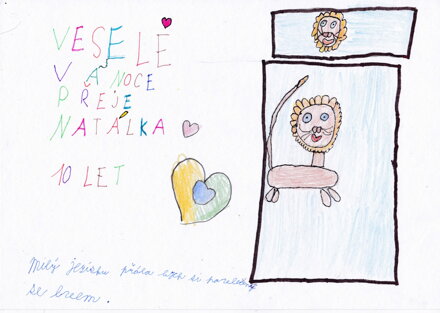 VESELÉ
VÁNOCE
PŘEJE
NATÁLKA
10 LET
Milý ježíšku přála bych si
se lvem.